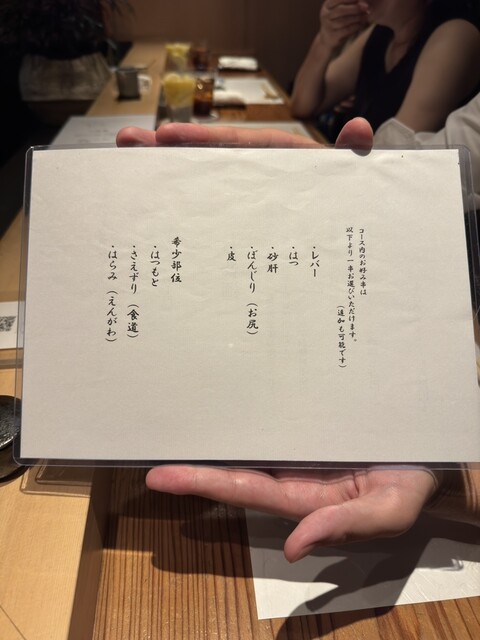 コース内のお好み串は
以下より一串お選びいただけます。
（追加も可能です）
・レバー
・はつ
・砂肝
・ぼんじり（お尻）
・皮
希少部位
・はつもと
・さえずり（食道）
・はらみ（えんがわ）